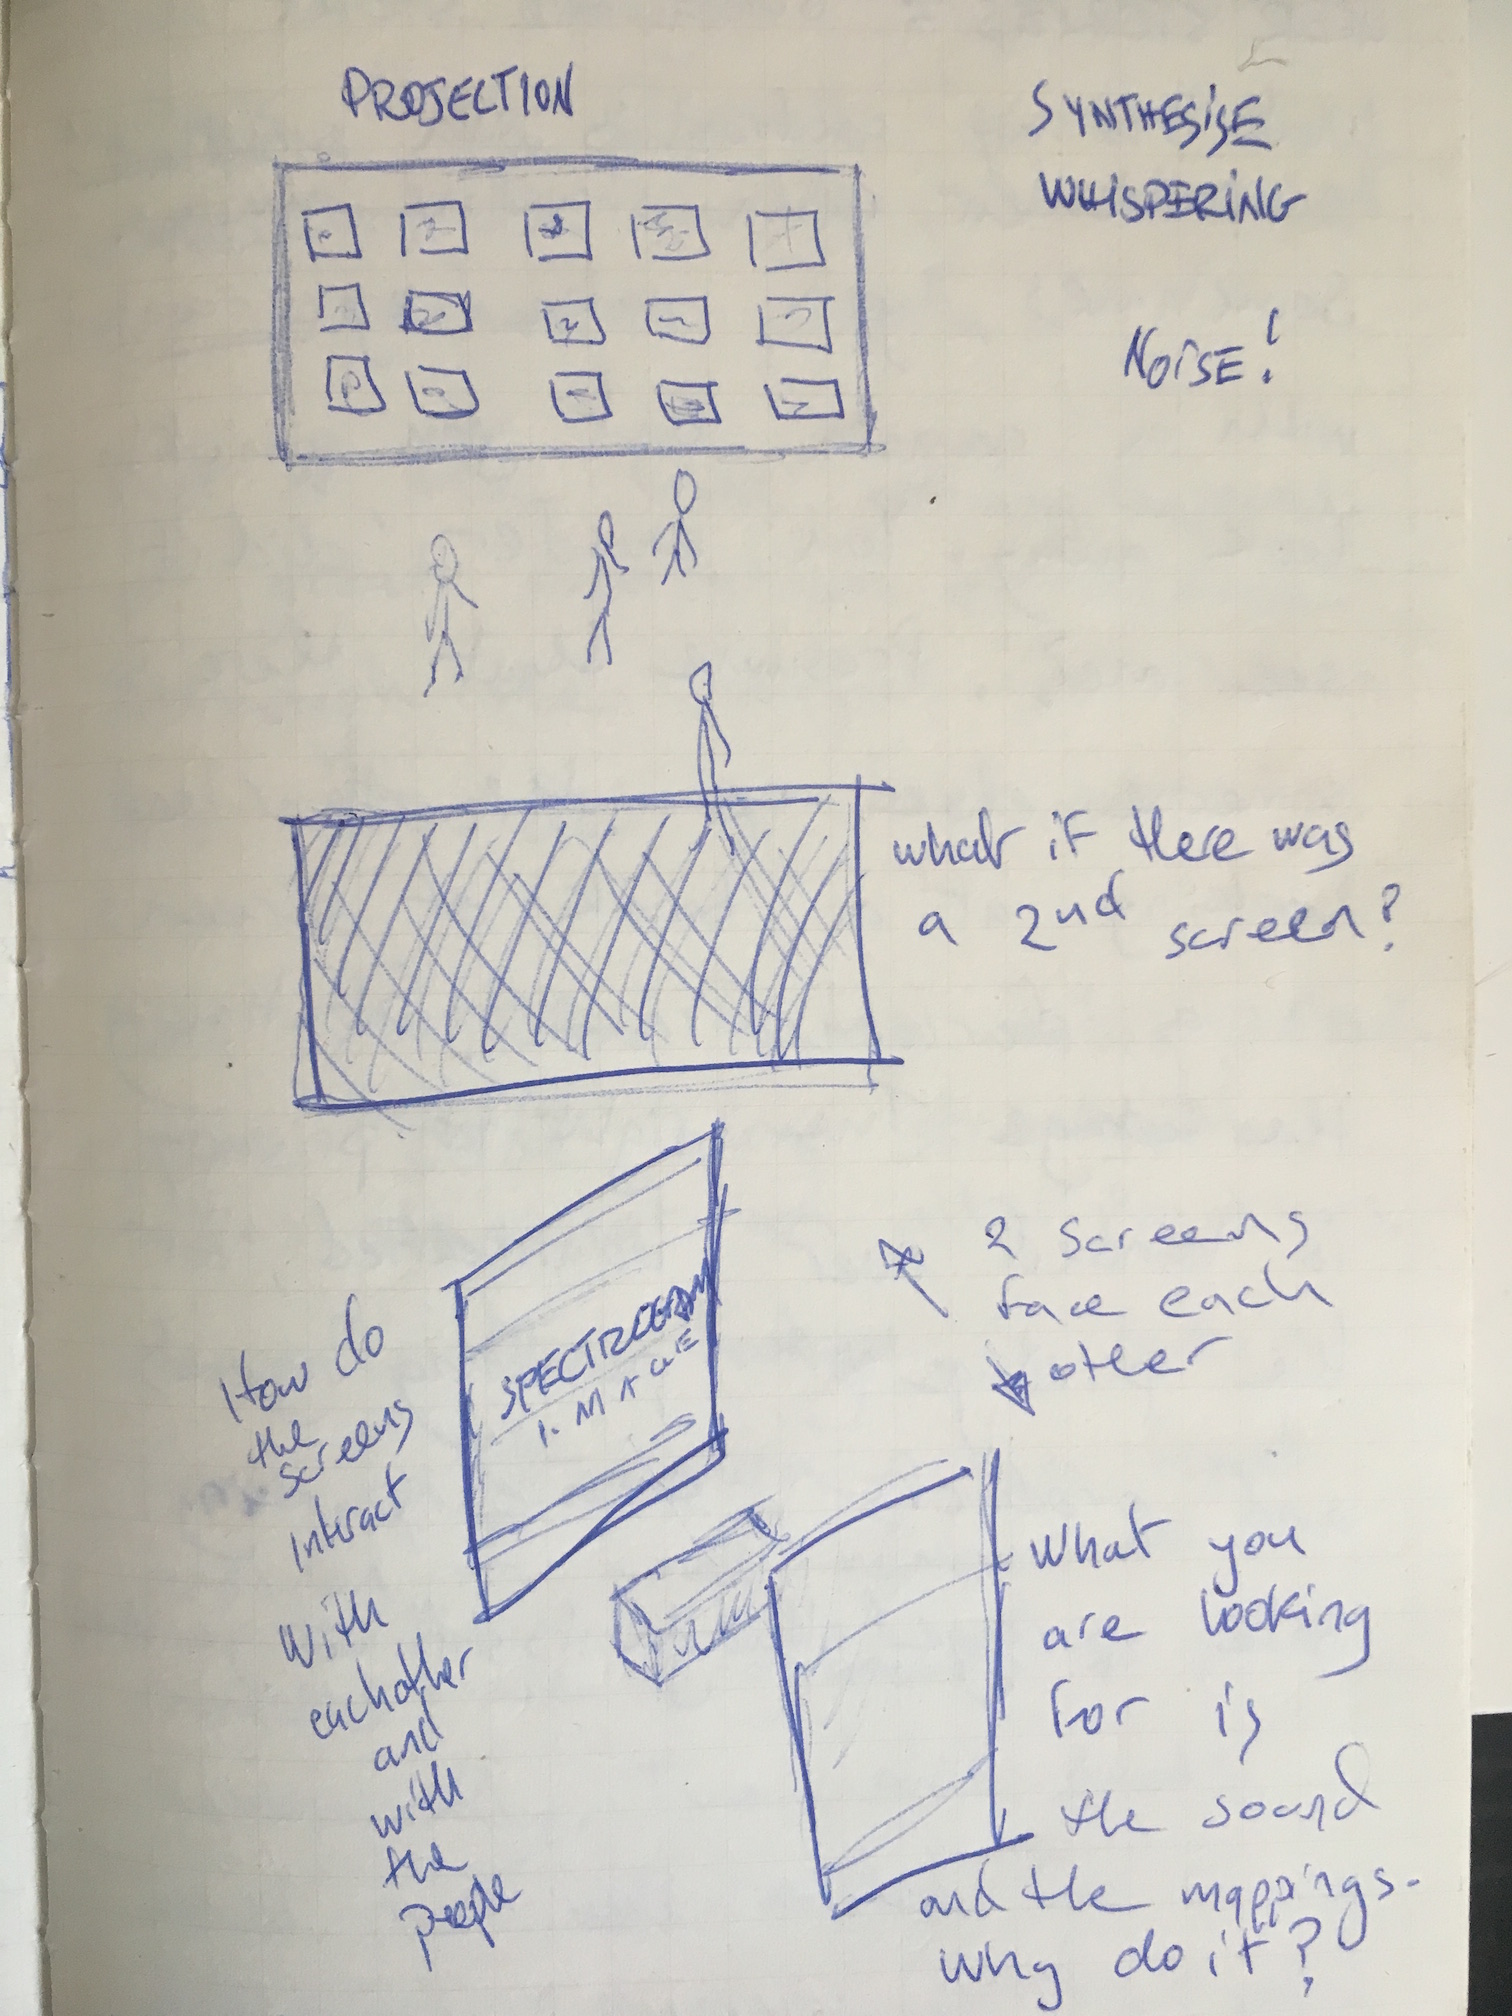 PROJECTION
SYNTHESISE
WHISPERING
NOISE!
what if there was
a 2nd screen?
SPECTROGRAM
IMAGE
2 screens
face each
other
How do
the
screens
interact
with
eachother
and
with
the
people
What you
are looking
for is
the sound
and the mappings.
why do it?